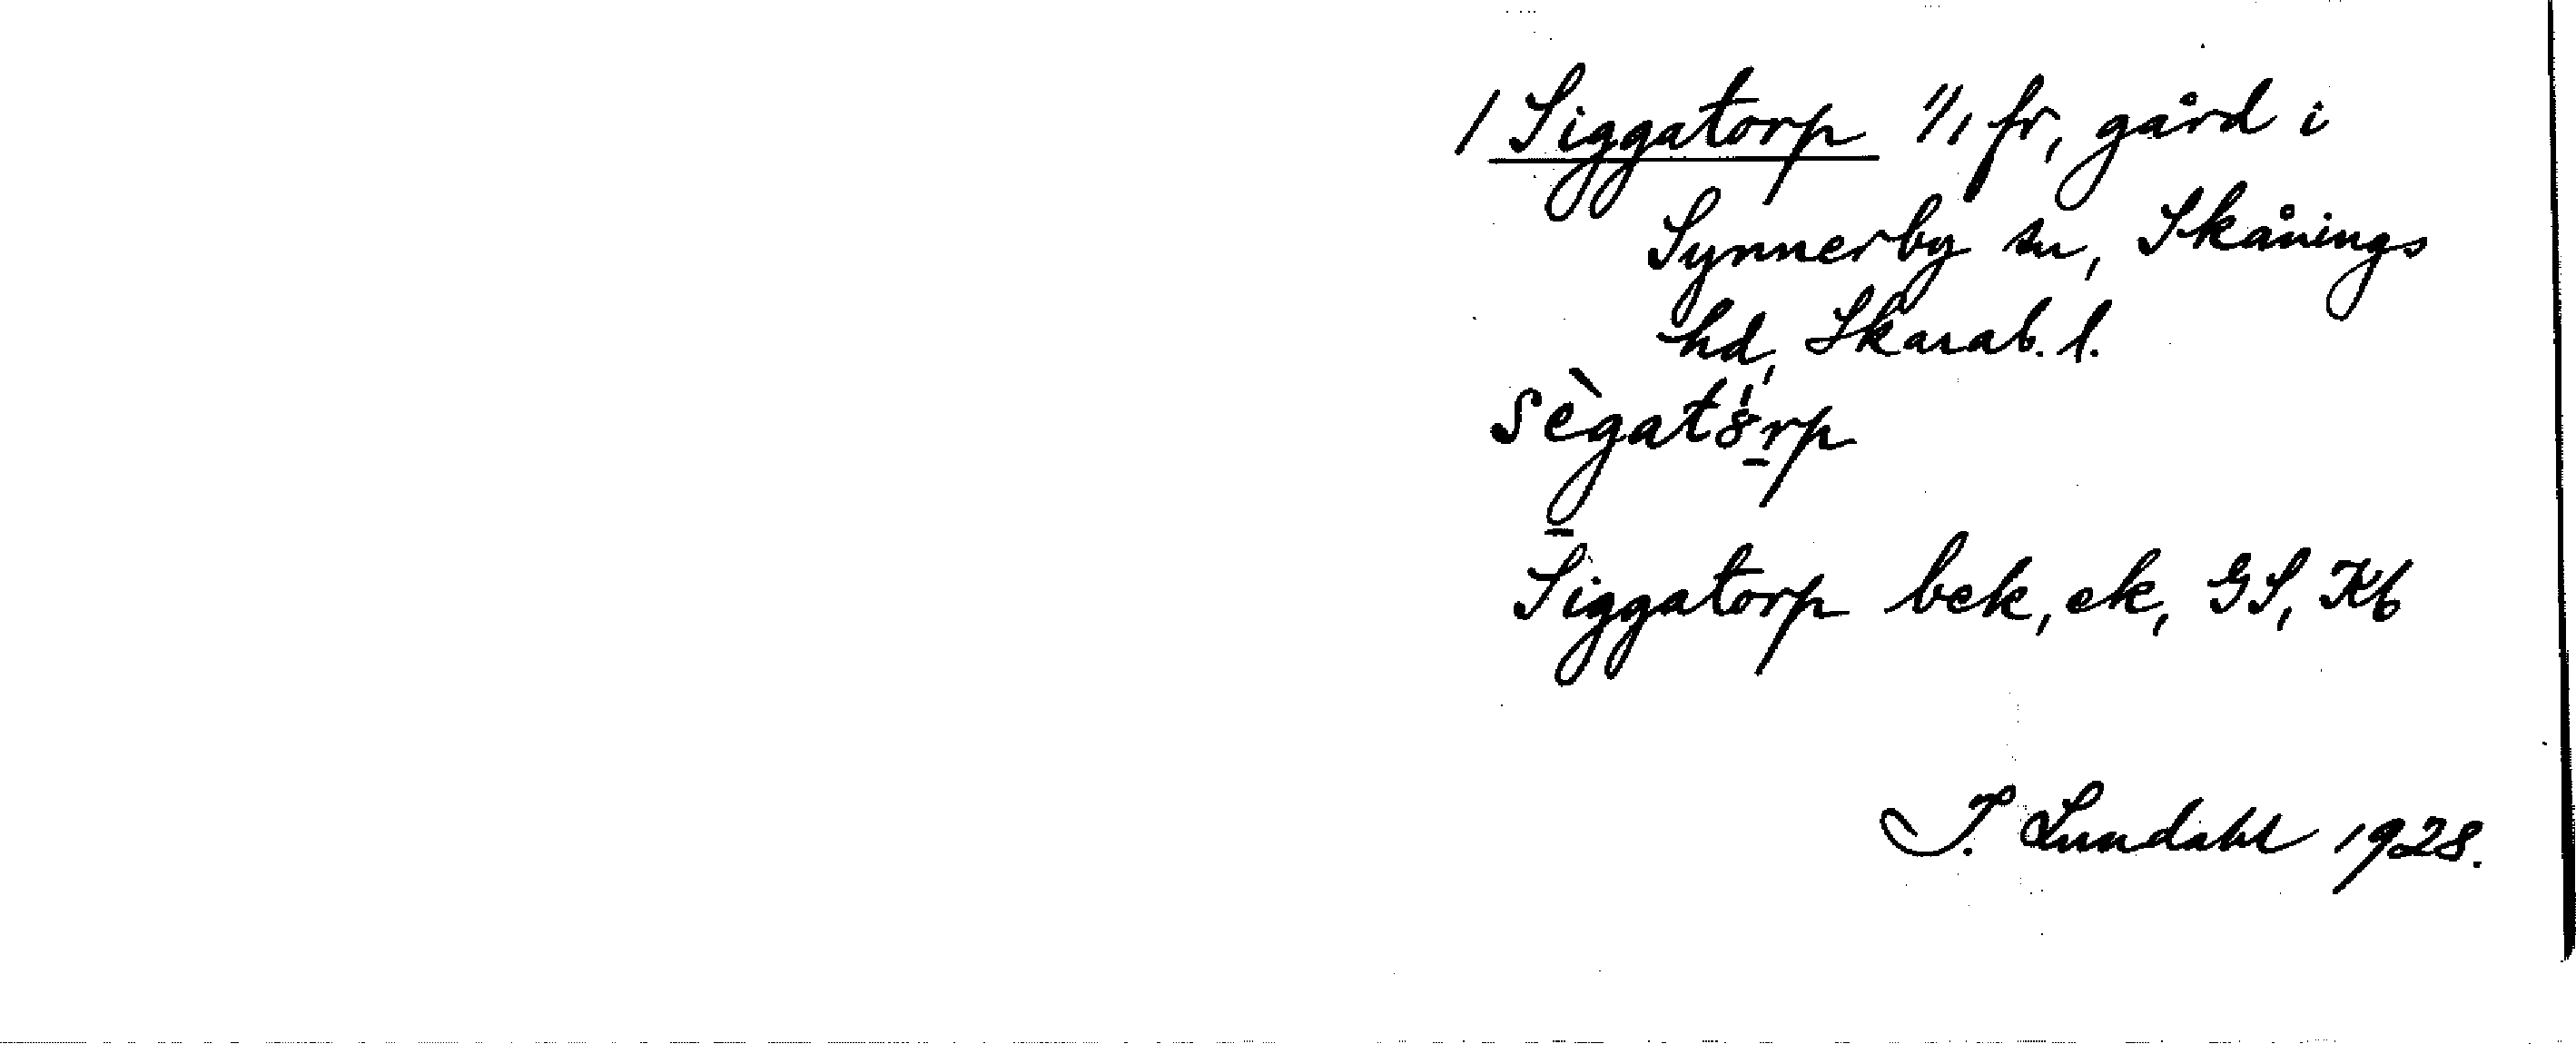 / Siggatorp 1/1 fr, gård i
Synnerby sn, Skånings
hd, Skarab. l.
sègat8rp
Siggatorp bek, ek, GS, Kb
I. Lundahl 1928.